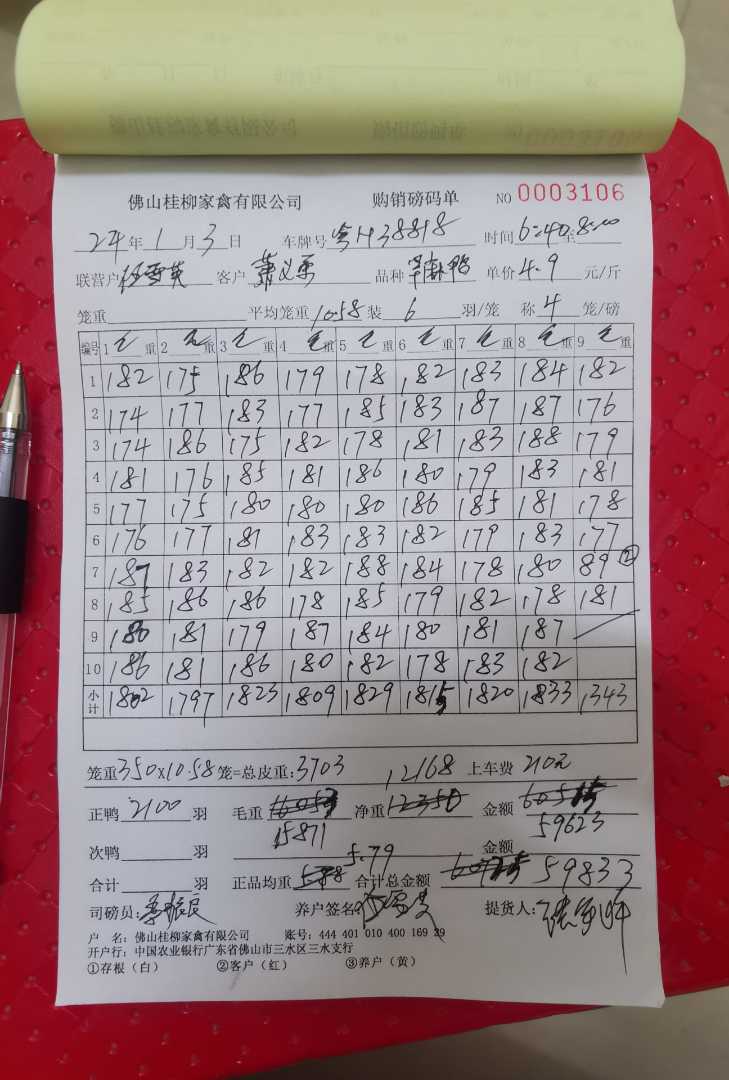 佛山桂柳家禽有限公司 购销磅码单 NO 0003106
24年1月3日 车牌号 粤H38818 时间6:40至8:00
联营户 客户 萧义勇 品种 单价4.9元/斤
笼重 平均笼重10.58装 6 羽/笼 称 4 笼/磅
编号 1 毛重 2 毛重 3 毛重 4 毛重 5 毛重 6 毛重 7 毛重 8 毛重 9 毛重
1 182 175 186 179 178 182 183 184 182
2 174 177 183 177 185 183 187 187 176
3 174 186 175 182 178 181 183 188 179
4 181 176 185 181 186 180 179 183 181
5 177 175 180 180 180 186 185 181 178
6 176 177 187 183 183 182 179 183 177
7 187 183 182 182 188 184 178 180 89 ②
8 185 186 186 178 185 179 182 178 181
9 180 181 179 187 184 180 181 187
10 186 181 186 180 182 178 183 182
小计 1802 1797 1823 1809 1829 1815 1820 1833 1343
笼重350×10.58笼=总皮重:3703 12168 上车费 210元
正鸭 2100 羽 毛重 16053 净重 12350 金额
15871 59623
次鸭 羽 金额
5.79
合计 羽 正品均重 合计总金额 59833
司磅员: 养户签名 提货人:
户 名: 佛山桂柳家禽有限公司 账号: 444 401 010 400 169 39
开户行: 中国农业银行广东省佛山市三水区三水支行
①存根(白) ②客户(红) ③养户(黄)